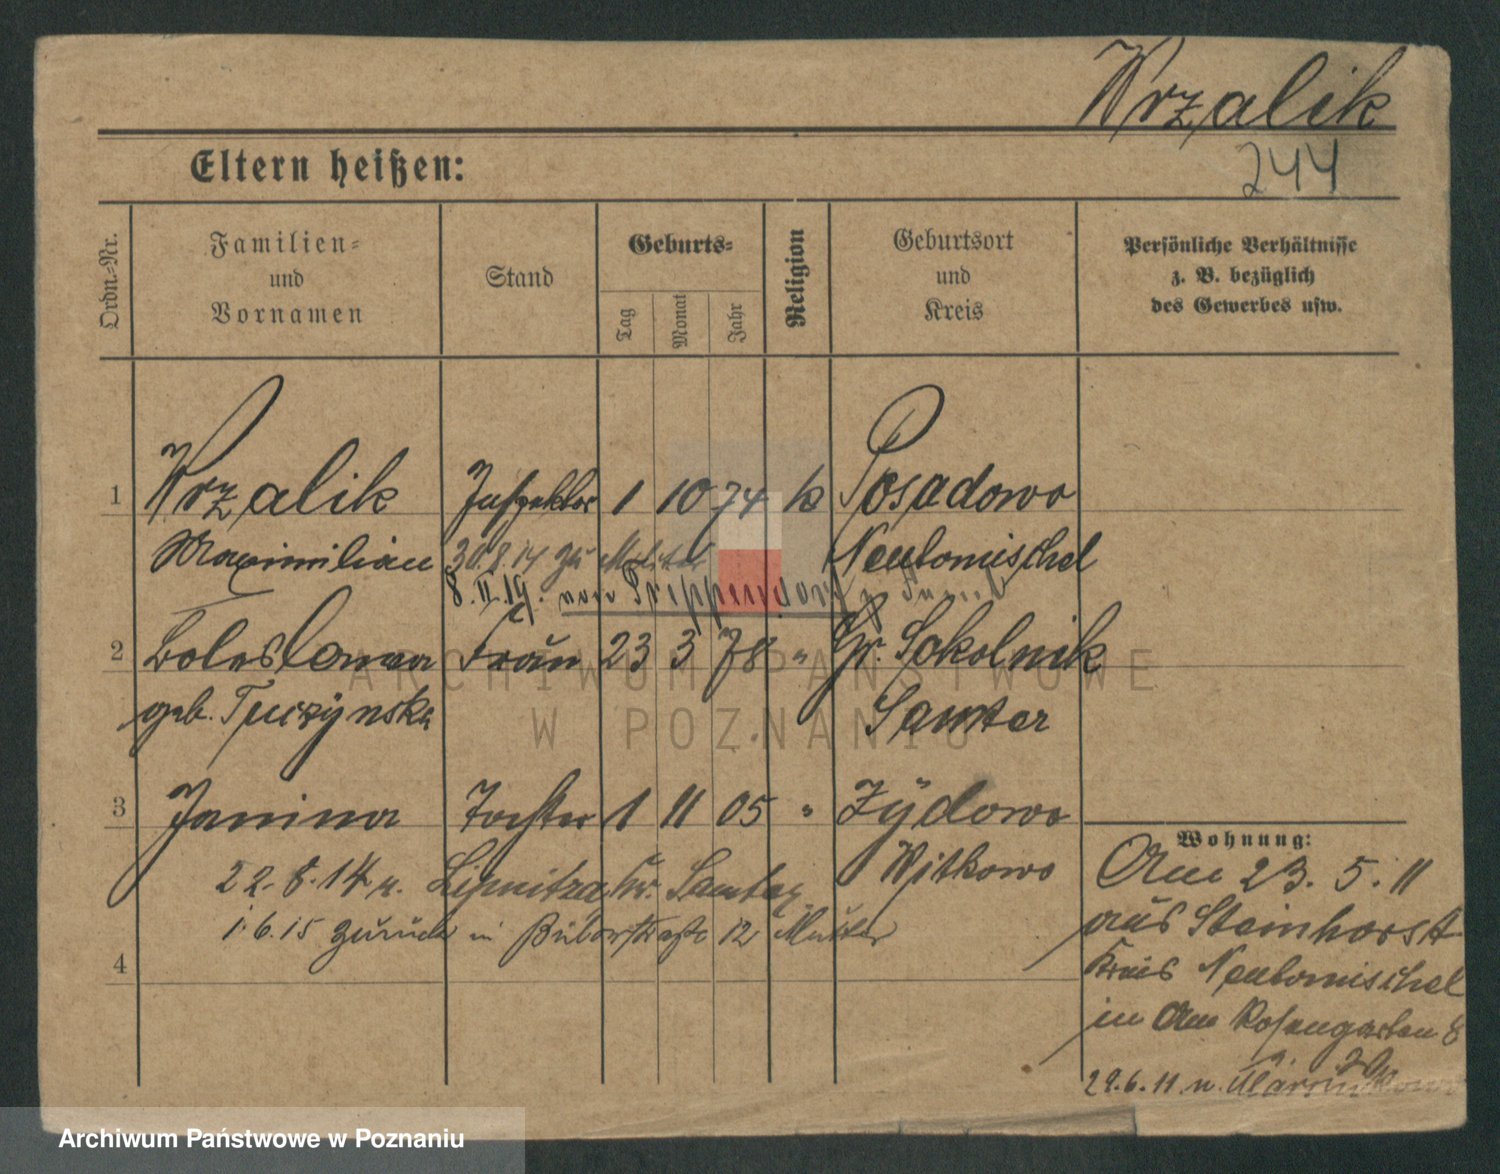 Wrzalik
244
Eltern heißen:
Ordn.-Nr.
Familien-
und
Vornamen
Stand
Geburts-
Tag
Monat
Jahr
Religion
Geburtsort
und
Kreis
Persönliche Verhältnisse
z. B. bezüglich
des Gewerbes usw.
1 Wrzalik Inspektor 1 10 74 k Posadowo
Maximilian 30.8.14 zu Militär Neutomischel
8. II. 19. von
2 Boleslawa Frau 23 3 78 " Gr. Sokolnik
geb. Tuczynska Samter
3 Janina Tochter 1 11 05 " Zydowo
Witkowo
22.8.14 n. Lipnitza Kr. Samter
1.6.15 zurück in 12 Mutter
4
Wohnung:
Am 23.5.11
aus Steinhorst
Kreis Neutomischel
in Am Rosengarten 8
29.6.11 n.
ARCHIWUM PAŃSTWOWE
W POZNANIU
Archiwum Państwowe w Poznaniu